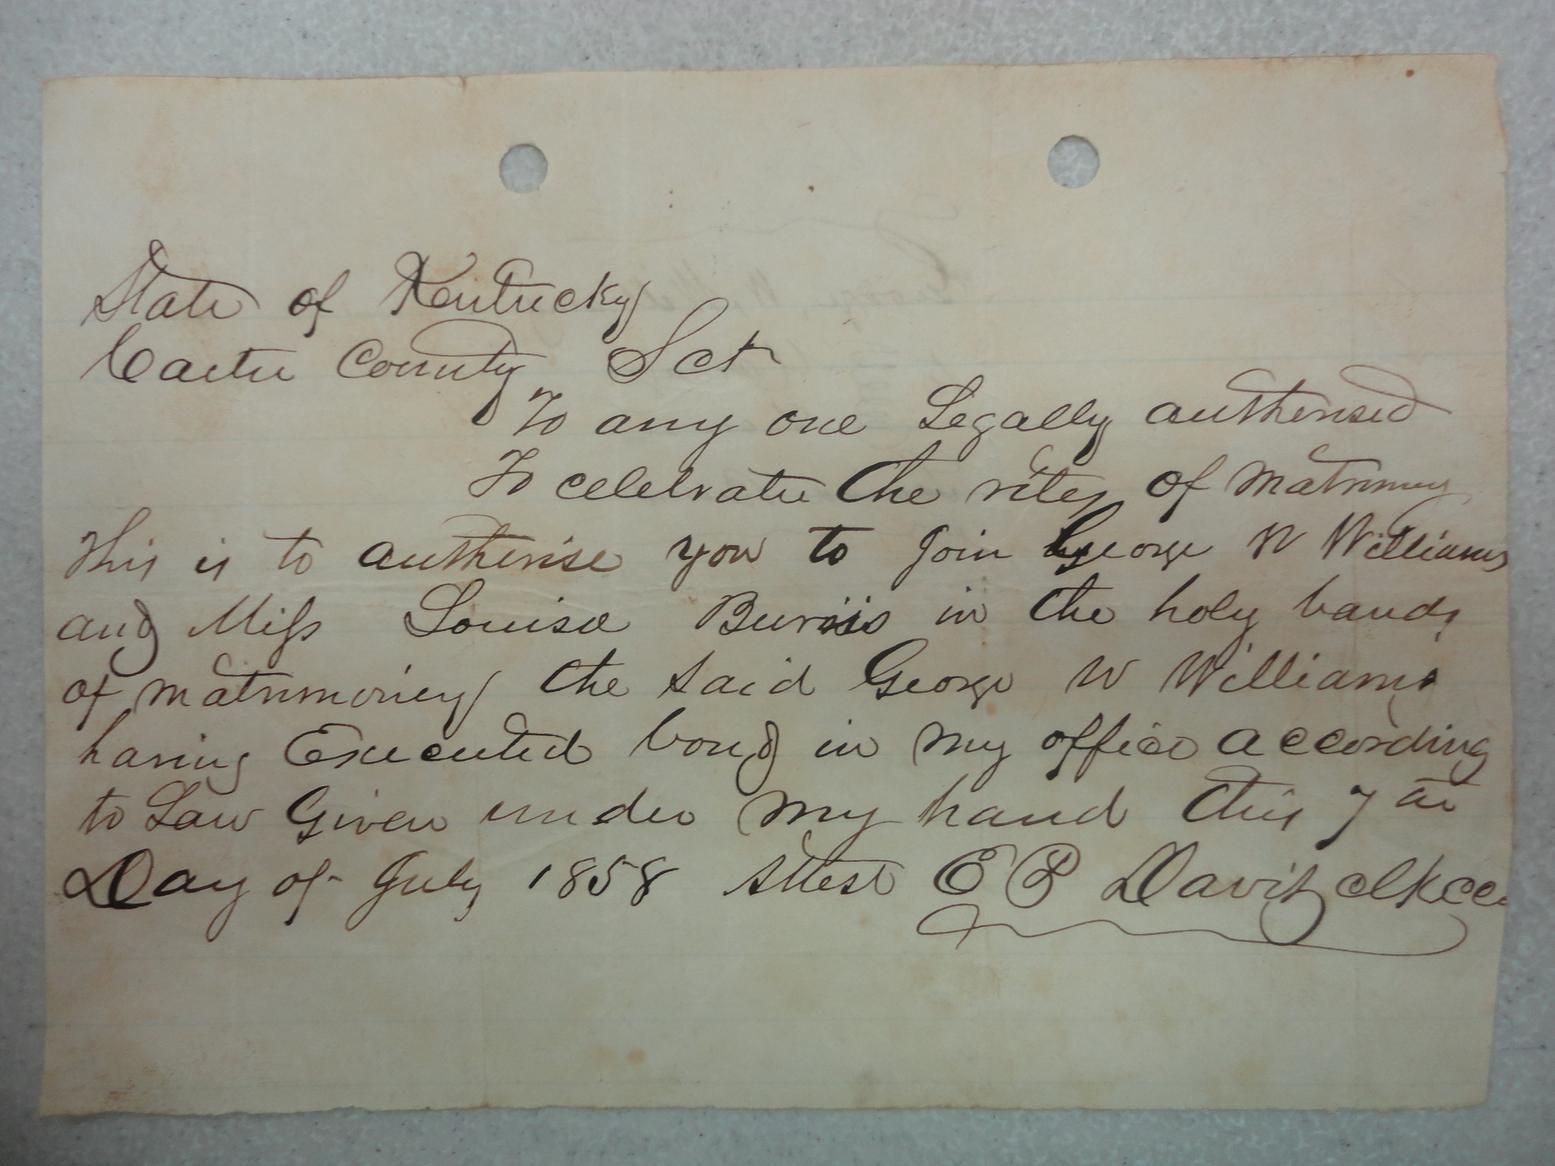 State of Kentucky
Carter County Sct
To any one Legally autherised
To celebrate the rites of Matrimony
This is to autherise you to join George W Williams
and Miss Louisa Burris in the holy bands
of matrimoney the said George W Williams
having Executed bond in my office according
to Law Given under my hand this 7th
Day of July 1858 Attest E P Davis clkccc